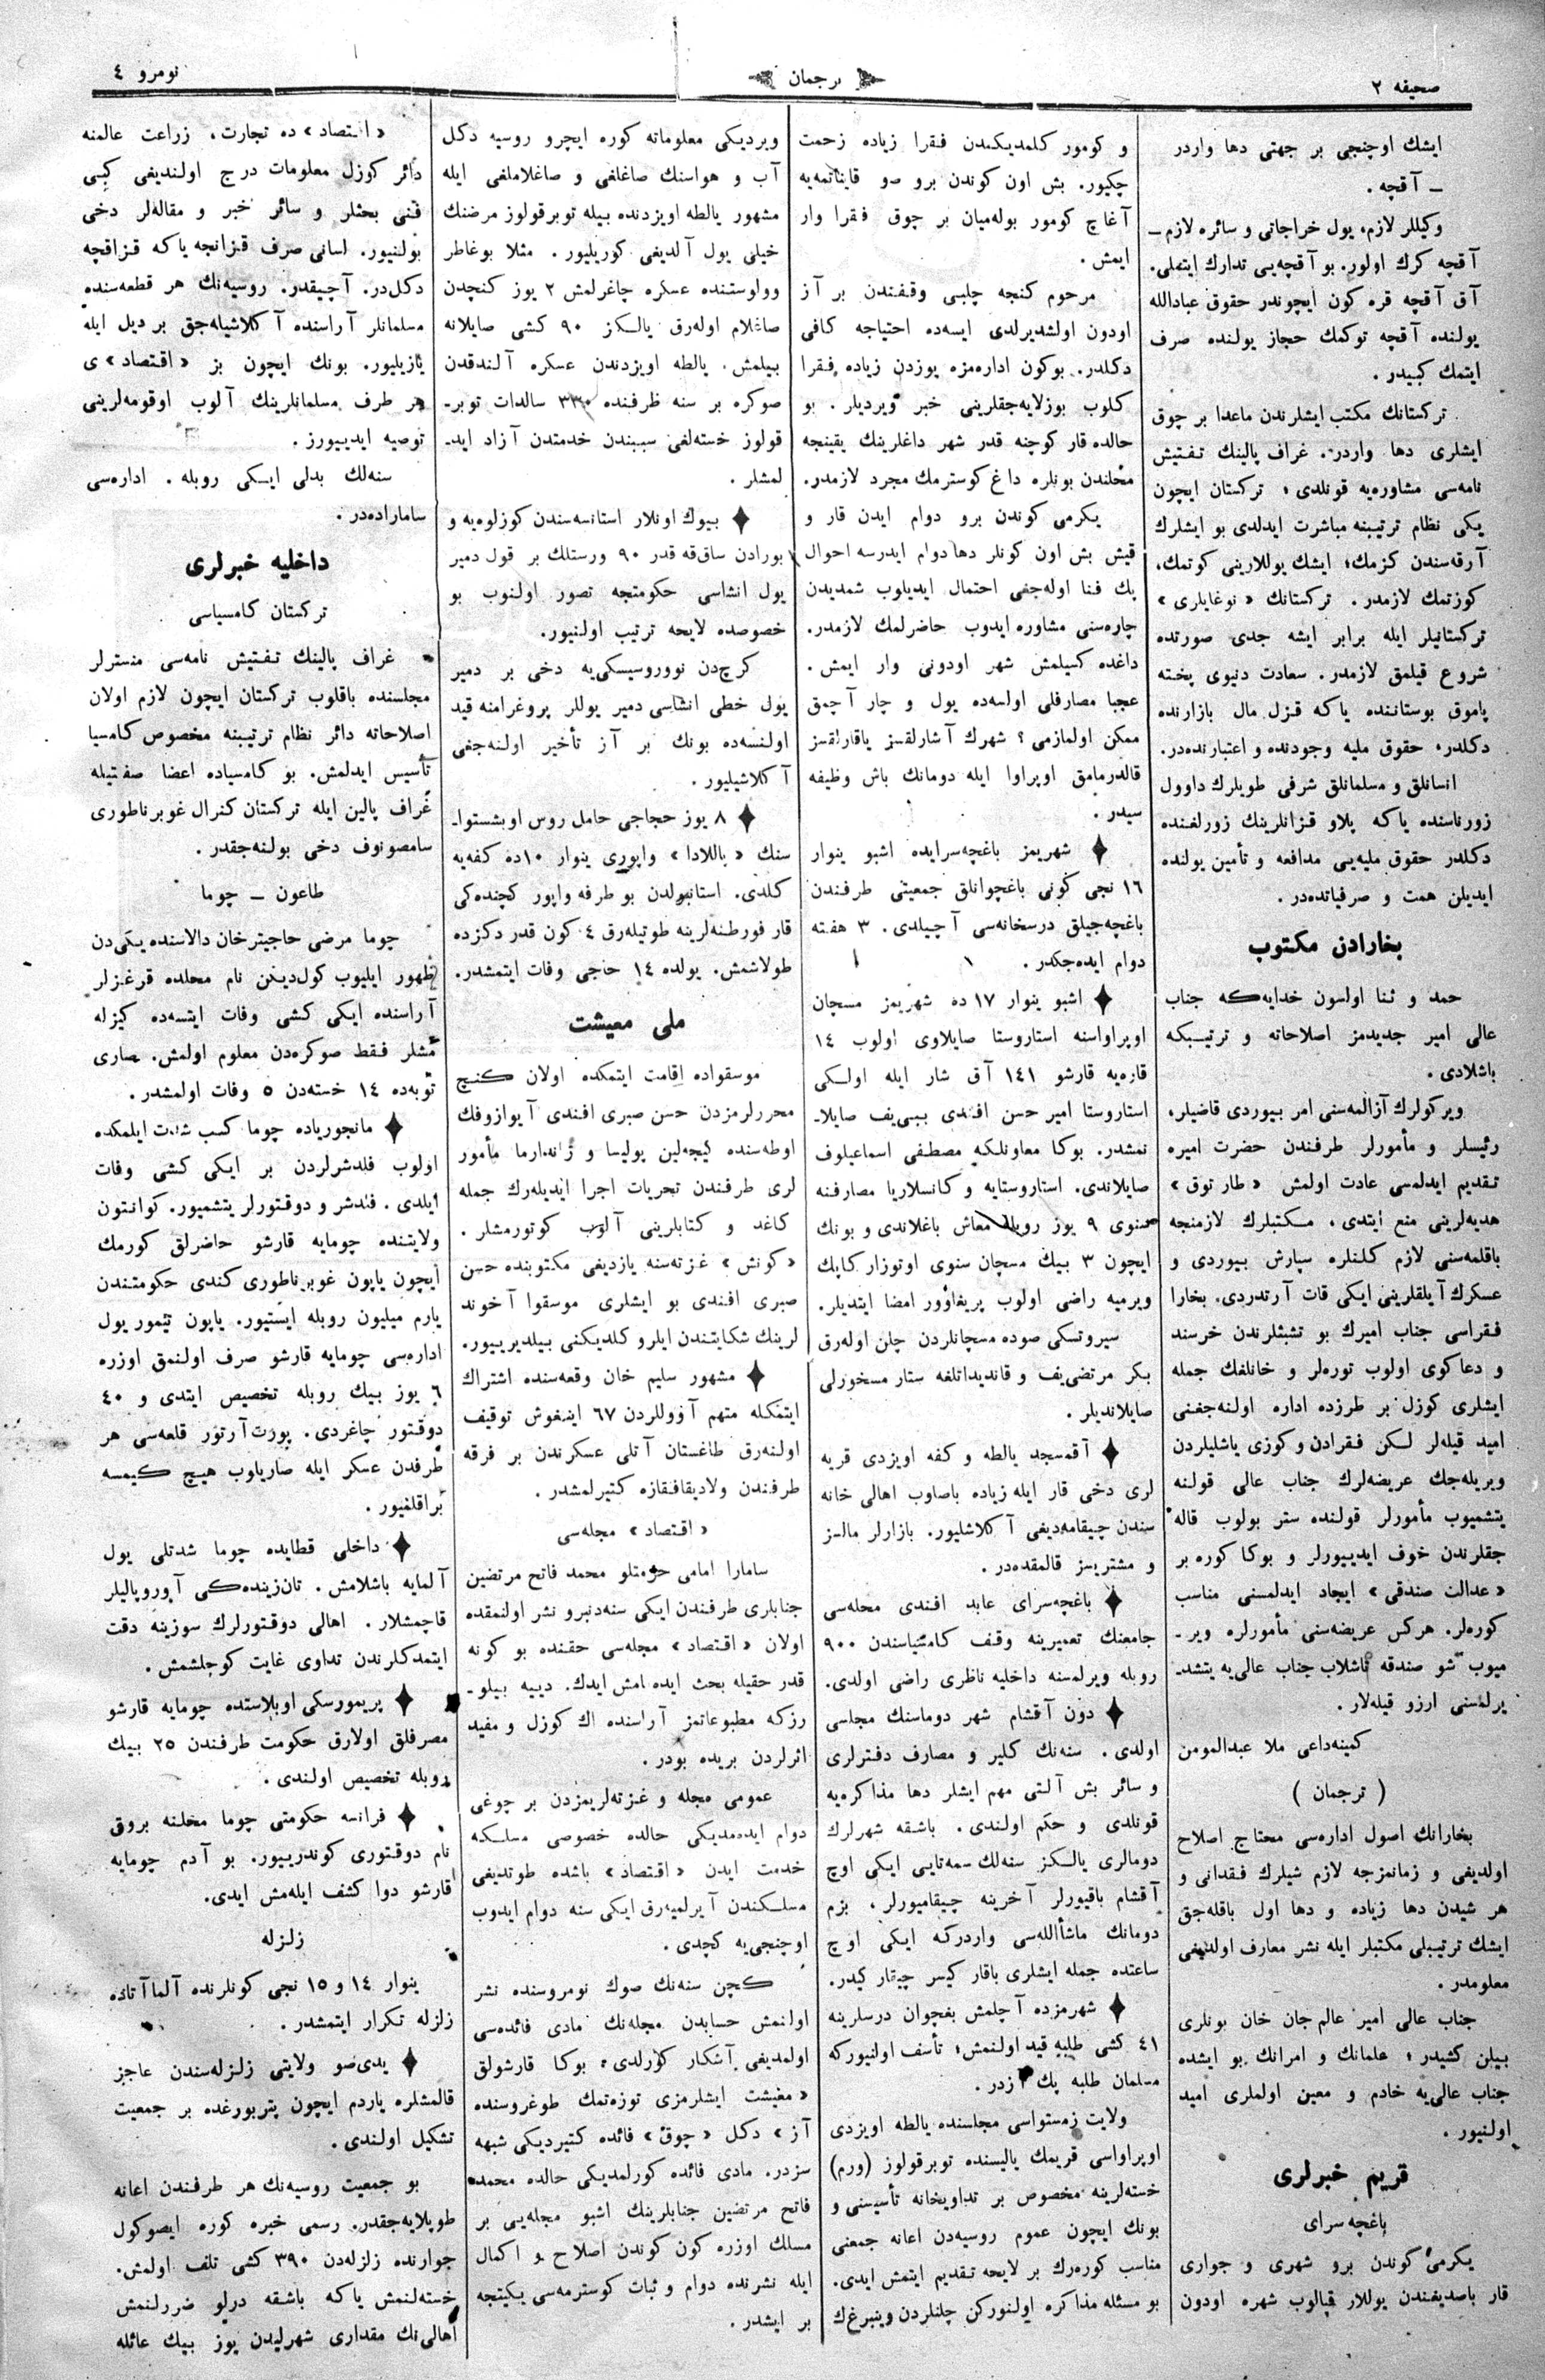 صحیفه ٢
ترجمان
نومرو ٤
ایشك اوچنجی بر جهتی دها واردر
ــ آقچه .
وكیللر لازم، یول خراجاتی و سائره لازم ــ
آقچه كرك اولور. بو آقچه‌یی تدارك ایتملی.
آق آقچه قره كون ایچوندر حقوق عبادالله
یولنده آقچه توكمك حجاز یولنده صرف
ایتمك كبیدر .
تركستانك مكتب ایشلرندن ماعدا بر چوق
ایشلری دها واردر. غراف پالینك تفتیش
نامه‌سی مشاوره‌یه قونلدی ؛ تركستان ایچون
یكی نظام ترتیبنه مباشرت ایدلدی بو ایشلرك
آرقه‌سندن كزمك؛ ایشك یوللارینی كوتمك،
كوزتمك لازمدر . تركستانك « نوغایلری »
تركستانیلر ایله برابر ایشه جدی صورتده
شروع قیلمق لازمدر. سعادت دنیوی پخته
پاموق بوستاننده یاكه قزل مال بازارنده
دكلدر، حقوق ملیه وجودنده و اعتبارنده‌در.
انسانلق و مسلمانلق شرفی طویلرك داوول
زورناسنده یاكه پلاو قزانلرینك زورلغنده
دكلدر حقوق ملیه‌یی مدافعه و تأمین یولنده
ایدیلن همت و صرفیاتده‌در .
بخارادن مكتوب
حمد و ثنا اولسون خدایه‌كه جناب
عالی امیر جدیدمز اصلاحاته و ترتیبكه
باشلادی .
ویركولرك آزالمه‌سنی امر بیوردی قاضیلر،
رئیسلر و مأمورلر طرفندن حضرت امیره
تقدیم ایدلمسی عادت اولمش « طارتوق »
هدیه‌لرینی منع ایتدی، مكتبلرك لازمنجه
باقلمه‌سنی لازم كلنلره سپارش بیوردی و
عسكرك آیلقلرینی ایكی قات آرتدردی. بخارا
فقراسی جناب امیرك بو تشبثلرندن خرسند
و دعا كوی اولوب توره‌لر و خانلغك جمله
ایشلری كوزل بر طرزده اداره اولنه‌جغنی
امید قیله‌لر لكن فقرادن و كوزی یاشلیلردن
ویریله‌جك عریضه‌لرك جناب عالی قولنه
یتشمیوب مأمورلر قولنده ستر بولوب قاله
جقلرندن خوف ایدییورلر و بوكا كوره بر
« عدالت صندقی » ایجاد ایدلمسنی مناسب
كوره‌لر. هركس عریضه‌سنی مأمورلره ویر ـ
میوب شو صندقه تاشلاب جناب عالی‌یه یتشد ـ
یرلمسنی ارزو قیله‌لار .
كمینه‌داعی ملا عبدالمومن
( ترجمان )
بخارانك اصول اداره‌سی محتاج اصلاح
اولدیغی و زمانمزجه لازم شیلرك فقدانی و
هر شیدن دها زیاده و دها اول باقله‌جق
ایشك ترتیبلی مكتبلر ایله نشر معارف اولدیغی
معلومدر .
جناب عالی امیر عالم جان خان بونلری
بیلن كشیدر ؛ علمانك و امرانك بو ایشده
جناب عالی‌یه خادم و معین اولملری امید
اولنیور .
قریم خبرلری
باغچه سرای
یكرمی كوندن برو شهری و جواری
قار باصدیغندن یوللار قپالوب شهره اودون
و كومور كلمدیكندن فقرا زیاده زحمت
چكیور. بش اون كوندن برو صو قایناتمه‌یه
آغاچ كومور بوله‌میان بر چوق فقرا وار
ایمش .
مرحوم كنجه چلبی وقفندن بر آز
اودون اولشدیرلدی ایسه‌ده احتیاجه كافی
دكلدر. بوكون اداره‌مزه یوزدن زیاده فقرا
كلوب بوزلایه‌جقلرینی خبر ویردیلر . بو
حالده قار كوچنه قدر شهر داغلرینك یقینجه
محلندن بونلره داغ كوسترمك مجرد لازمدر.
یكرمی كوندن برو دوام ایدن قار و
قیش بش اون كونلر دها دوام ایدرسه احوال
پك فنا اوله‌جغی احتمال ایدیلوب شمدیدن
چاره‌سنی مشاوره ایدوب حاضرلمك لازمدر.
داغده كسیلمش شهر اودونی وار ایمش .
عجبا مصارفلی اولسه‌ده یول و چار آچمق
ممكن اولمازمی ؟ شهرك آشارلقسز یاقارلقسز
قالدرمامق اوپراوا ایله دومانك باش وظیفه
سیدر .
شهریمز باغچه‌سرایده اشبو ینوار
١٦ نجی كونی باغچوانلق جمعیتی طرفندن
باغچه‌جیلق درسخانه‌سی آچیلدی. ٣ هفته
دوام ایده‌جكدر .
اشبو ینوار ١٧ ده شهریمز مسچان
اوپراواسنه استاروستا صایلاوی اولوب ١٤
قاره‌یه قارشو ١٤١ آق شار ایله اولكی
استاروستا امیر حسن افندی بیبی‌یف صایلا ـ
نمشدر. بوكا معاونلكه مصطفی اسماعیلوف
صایلاندی. استاروستایه و كانسلاریا مصارفنه
سنوی ٩ یوز روبله معاش باغلاندی و بونك
ایچون ٣ بیك مسچان سنوی اوتوزار كاپك
ویرمیه راضی اولوب پریغاوور امضا ایتدیلر.
سیروتسكی صوده مسچانلردن چلن اوله‌رق
بكر مرتضی‌یف و قاندیداتلغه ستار مسخورلی
صایلاندیلر .
آقمسجد یالطه و كفه اویزدی قریه
لری دخی قار ایله زیاده باصاوب اهالی خانه
سندن چیقامه‌دیغی آكلاشلیور. بازارلر مالسز
و مشتریسز قالمقده‌در .
باغچه‌سرای عابد افندی محله‌سی
جامعنك تعمیرینه وقف كامسیاسندن ٩٠٠
روبله ویرلمسنه داخلیه ناظری راضی اولدی.
دون آقشام شهر دوماسنك مجلسی
اولدی . سنه‌نك كلیر و مصارف دفترلری
و سائر بش آلتی مهم ایشلر دها مذاكره‌یه
قونلدی و حكم اولندی. باشقه شهرلرك
دومالری یالكز سنه‌لك سمه‌تایی ایكی اوچ
آقشام باقیورلر آخرینه چیقامیورلر، بزم
دومانك ماشأالله‌سی واردركه ایكی اوچ
ساعتده جمله ایشلری باقار كیسر چیقار كیدر.
شهرمزده آچلمش بغچوان درسلرینه
٤١ كشی طلبه قید اولنمش؛ تأسف اولنیوركه
مسلمان طلبه پك آزدر .
ولایت زمستواسی مجلسنده یالطه اویزدی
اوپراواسی قریمك یالیسنده توبرقولوز (ورم)
خسته‌لرینه مخصوص بر تداویخانه تأسیسنی و
بونك ایچون عموم روسیه‌دن اعانه جمعنی
مناسب كوره‌رك بر لایحه تقدیم ایتمش ایدی.
بو مسئله مذاكره اولنوركن چلنلردن وینبرغ‌ك
ویردیكی معلوماته كوره ایچرو روسیه دكل
آب و هواسنك صاغلغی و صاغلاملغی ایله
مشهور یالطه اویزدنده بیله توبرقولوز مرضنك
خیلی یول آلدیغی كوریلیور . مثلا بوغاطر
وولوستنده عسكره چاغرلمش ٢ یوز كنچدن
صاغلام اوله‌رق یالكز ٩٠ كشی صایلانه
بیلمش. یالطه اویزدندن عسكره آلندقدن
صوكره بر سنه ظرفنده ٣٣٠ سالدات توبر ـ
قولوز خسته‌لغی سببندن خدمتدن آزاد اید ـ
لمشلر .
بیوك اونلار استانسه‌سندن كوزلوه‌یه و
بورادن ساق‌قه قدر ٩٠ ورستلك بر قول دمیر
یول انشاسی حكومتجه تصور اولنوب بو
خصوصده لایحه ترتیب اولنیور.
كرچ‌دن نووروسیسكی‌یه دخی بر دمیر
یول خطی انشاسی دمیر یوللر پروغرامنه قید
اولنسه‌ده بونك بر آز تأخیر اولنه‌جغی
آكلاشیلیور .
٨ یوز حجاجی حامل روس اوبشستوا ـ
سنك « باللادا » واپوری ینوار ١٠ده كفه‌یه
كلدی. استانبولدن بو طرفه واپور كچنده‌كی
قار فورطنه‌لرینه طوتیله‌رق ٤ كون قدر دكزده
طولاشمش. یولده ١٤ حاجی وفات ایتمشدر.
ملی معیشت
موسقواده اقامت ایتمكده اولان كنچ
محررلرمزدن حسن صبری افندی آیوازوفك
اوطه‌سنده كیجه‌لین پولیسا و ژاندارما مأمور
لری طرفندن تحریات اجرا ایدیله‌رك جمله
كاغد و كتابلرینی آلوب كوتورمشلر .
« كونش » غزته‌سنه یازدیغی مكتوبنده حسن
صبری افندی بو ایشلری موسقوا آخوند
لرینك شكایتندن ایلرو كلدیكنی بیلدیرییور.
مشهور سلیم خان وقعه‌سنده اشتراك
ایتمكله متهم آووللردن ٦٧ اینغوش توقیف
اولنه‌رق طاغستان آتلی عسكرندن بر فرقه
طرفندن ولادیقافقازه كتیرلمشدر .
« اقتصاد » مجله‌سی
سامارا امامی حرمتلو محمد فاتح مرتضین
جنابلری طرفندن ایكی سنه‌دنبرو نشر اولنمقده
اولان « اقتصاد » مجله‌سی حقنده بو كونه
قدر حقیله بحث ایده‌مامش ایدك. دییه بیلو ـ
رزكه مطبوعاتمز آراسنده اك كوزل و مفید
اثرلردن بریده بودر .
عمومی مجله و غزته‌لریمزدن بر چوغی
دوام ایده‌مدیكی حالده خصوصی مسلكه
خدمت ایدن « اقتصاد » باشده طوتدیغی
مسلكندن آیرلمیه‌رق ایكی سنه دوام ایدوب
اوچنجی‌یه كچدی .
كچن سنه‌نك صوك نومروسنده نشر
اولنمش حسابدن مجله‌نك مادی فائده‌سی
اولمدیغی آشكار كورلدی؛ بوكا قارشولق
« معیشت ایشلرمزی توزه‌تمك طوغروسنده
آز » دكل « چوق » فائده كتیردیكی شبهه
سزدر. مادی فائده كورلمدیكی حالده محمد
فاتح مرتضین جنابلرینك اشبو مجله‌یی بر
مسلك اوزره كون كوندن اصلاح و اكمال
ایله نشرنده دوام و ثبات كوسترمه‌سی یكیتجه
بر ایشدر .
« اقتصاد » ده تجارت، زراعت عالمنه
دائر كوزل معلومات درج اولندیغی كبی
فنی بحثلر و سائر خبر و مقاله‌لر دخی
بولنیور. لسانی صرف قزانجه یاكه قزاقچه
دكل‌در. آچیقدر. روسیه‌نك هر قطعه‌سنده
مسلمانلر آراسنده آكلاشیله‌جق بر دیل ایله
یازیلیور. بونك ایچون بز « اقتصاد » ی
هر طرف مسلمانلرینك آلوب اوقومه‌لرینی
توصیه ایدییورز .
سنه‌لك بدلی ایكی روبله . اداره‌سی
ساماراده‌در .
داخلیه خبرلری
تركستان كامسیاسی
غراف پالینك تفتیش نامه‌سی منسترلر
مجلسنده باقلوب تركستان ایچون لازم اولان
اصلاحاته دائر نظام ترتیبنه مخصوص كامسیا
تأسیس ایدلمش. بو كامسیاده اعضا صفتیله
غراف پالین ایله تركستان كنرال غوبرناطوری
سامصونوف دخی بولنه‌جقدر .
طاعون ــ چوما
چوما مرضی حاجیترخان دالاسنده یكی‌دن
ظهور ایلیوب كول‌دیغن نام محلده قرغزلر
آراسنده ایكی كشی وفات ایتسه‌ده كیزله
مشلر فقط صوكره‌دن معلوم اولمش. صاری
توبه‌ده ١٤ خسته‌دن ٥ وفات اولمشدر.
مانجوریاده چوما كسب شدت ایلمكده
اولوب فلدشرلردن بر ایكی كشی وفات
ایلدی . فلدشر و دوقتورلر یتشمیور. كوانتون
ولایتنده چومایه قارشو حاضرلق كورمك
ایچون یاپون غوبرناطوری كندی حكومتندن
یارم میلیون روبله ایستیور. یاپون تیمور یول
اداره‌سی چومایه قارشو صرف اولنمق اوزره
٦ یوز بیك روبله تخصیص ایتدی و ٤٠
دوقتور چاغردی. پورت آرتور قلعه‌سی هر
طرفدن عسكر ایله صاریلوب هیچ كیمسه
براقلمیور .
داخلی قطایده چوما شدتلی یول
آلمایه باشلامش. تان‌زینده‌كی آوروپالیلر
قاچمشلار . اهالی دوقتورلرك سوزینه دقت
ایتمدكلرندن تداوی غایت كوجلشمش.
پریمورسكی اوبلاستده چومایه قارشو
مصرفلق اولارق حكومت طرفندن ٢٥ بیك
روبله تخصیص اولندی .
فرانسه حكومتی چوما محلنه بروق
نام دوقتوری كوندرییور. بو آدم چومایه
قارشو دوا كشف ایله‌مش ایدی.
زلزله
ینوار ١٤ و ١٥ نجی كونلرنده آلماآتاده
زلزله تكرار ایتمشدر .
یدی‌صو ولایتی زلزله‌سندن عاجز
قالمشلره یاردم ایچون پتربورغده بر جمعیت
تشكیل اولندی .
بو جمعیت روسیه‌نك هر طرفندن اعانه
طوپلایه‌جقدر. رسمی خبره كوره ایصوكول
جوارنده زلزله‌دن ٣٩٠ كشی تلف اولمش.
خسته‌لنمش یاكه باشقه درلو ضررلنمش
اهالی‌نك مقداری شهرلیدن یوز بیك عائله